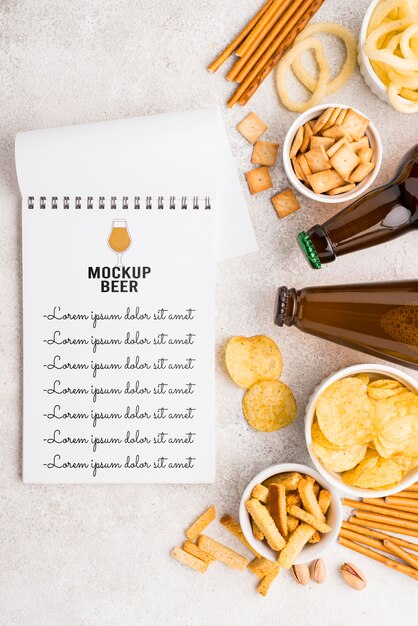 MOCKUP
BEER
-Lorem ipsum dolor sit amet
-Lorem ipsum dolor sit amet
-Lorem ipsum dolor sit amet
-Lorem ipsum dolor sit amet
-Lorem ipsum dolor sit amet
-Lorem ipsum dolor sit amet
-Lorem ipsum dolor sit amet